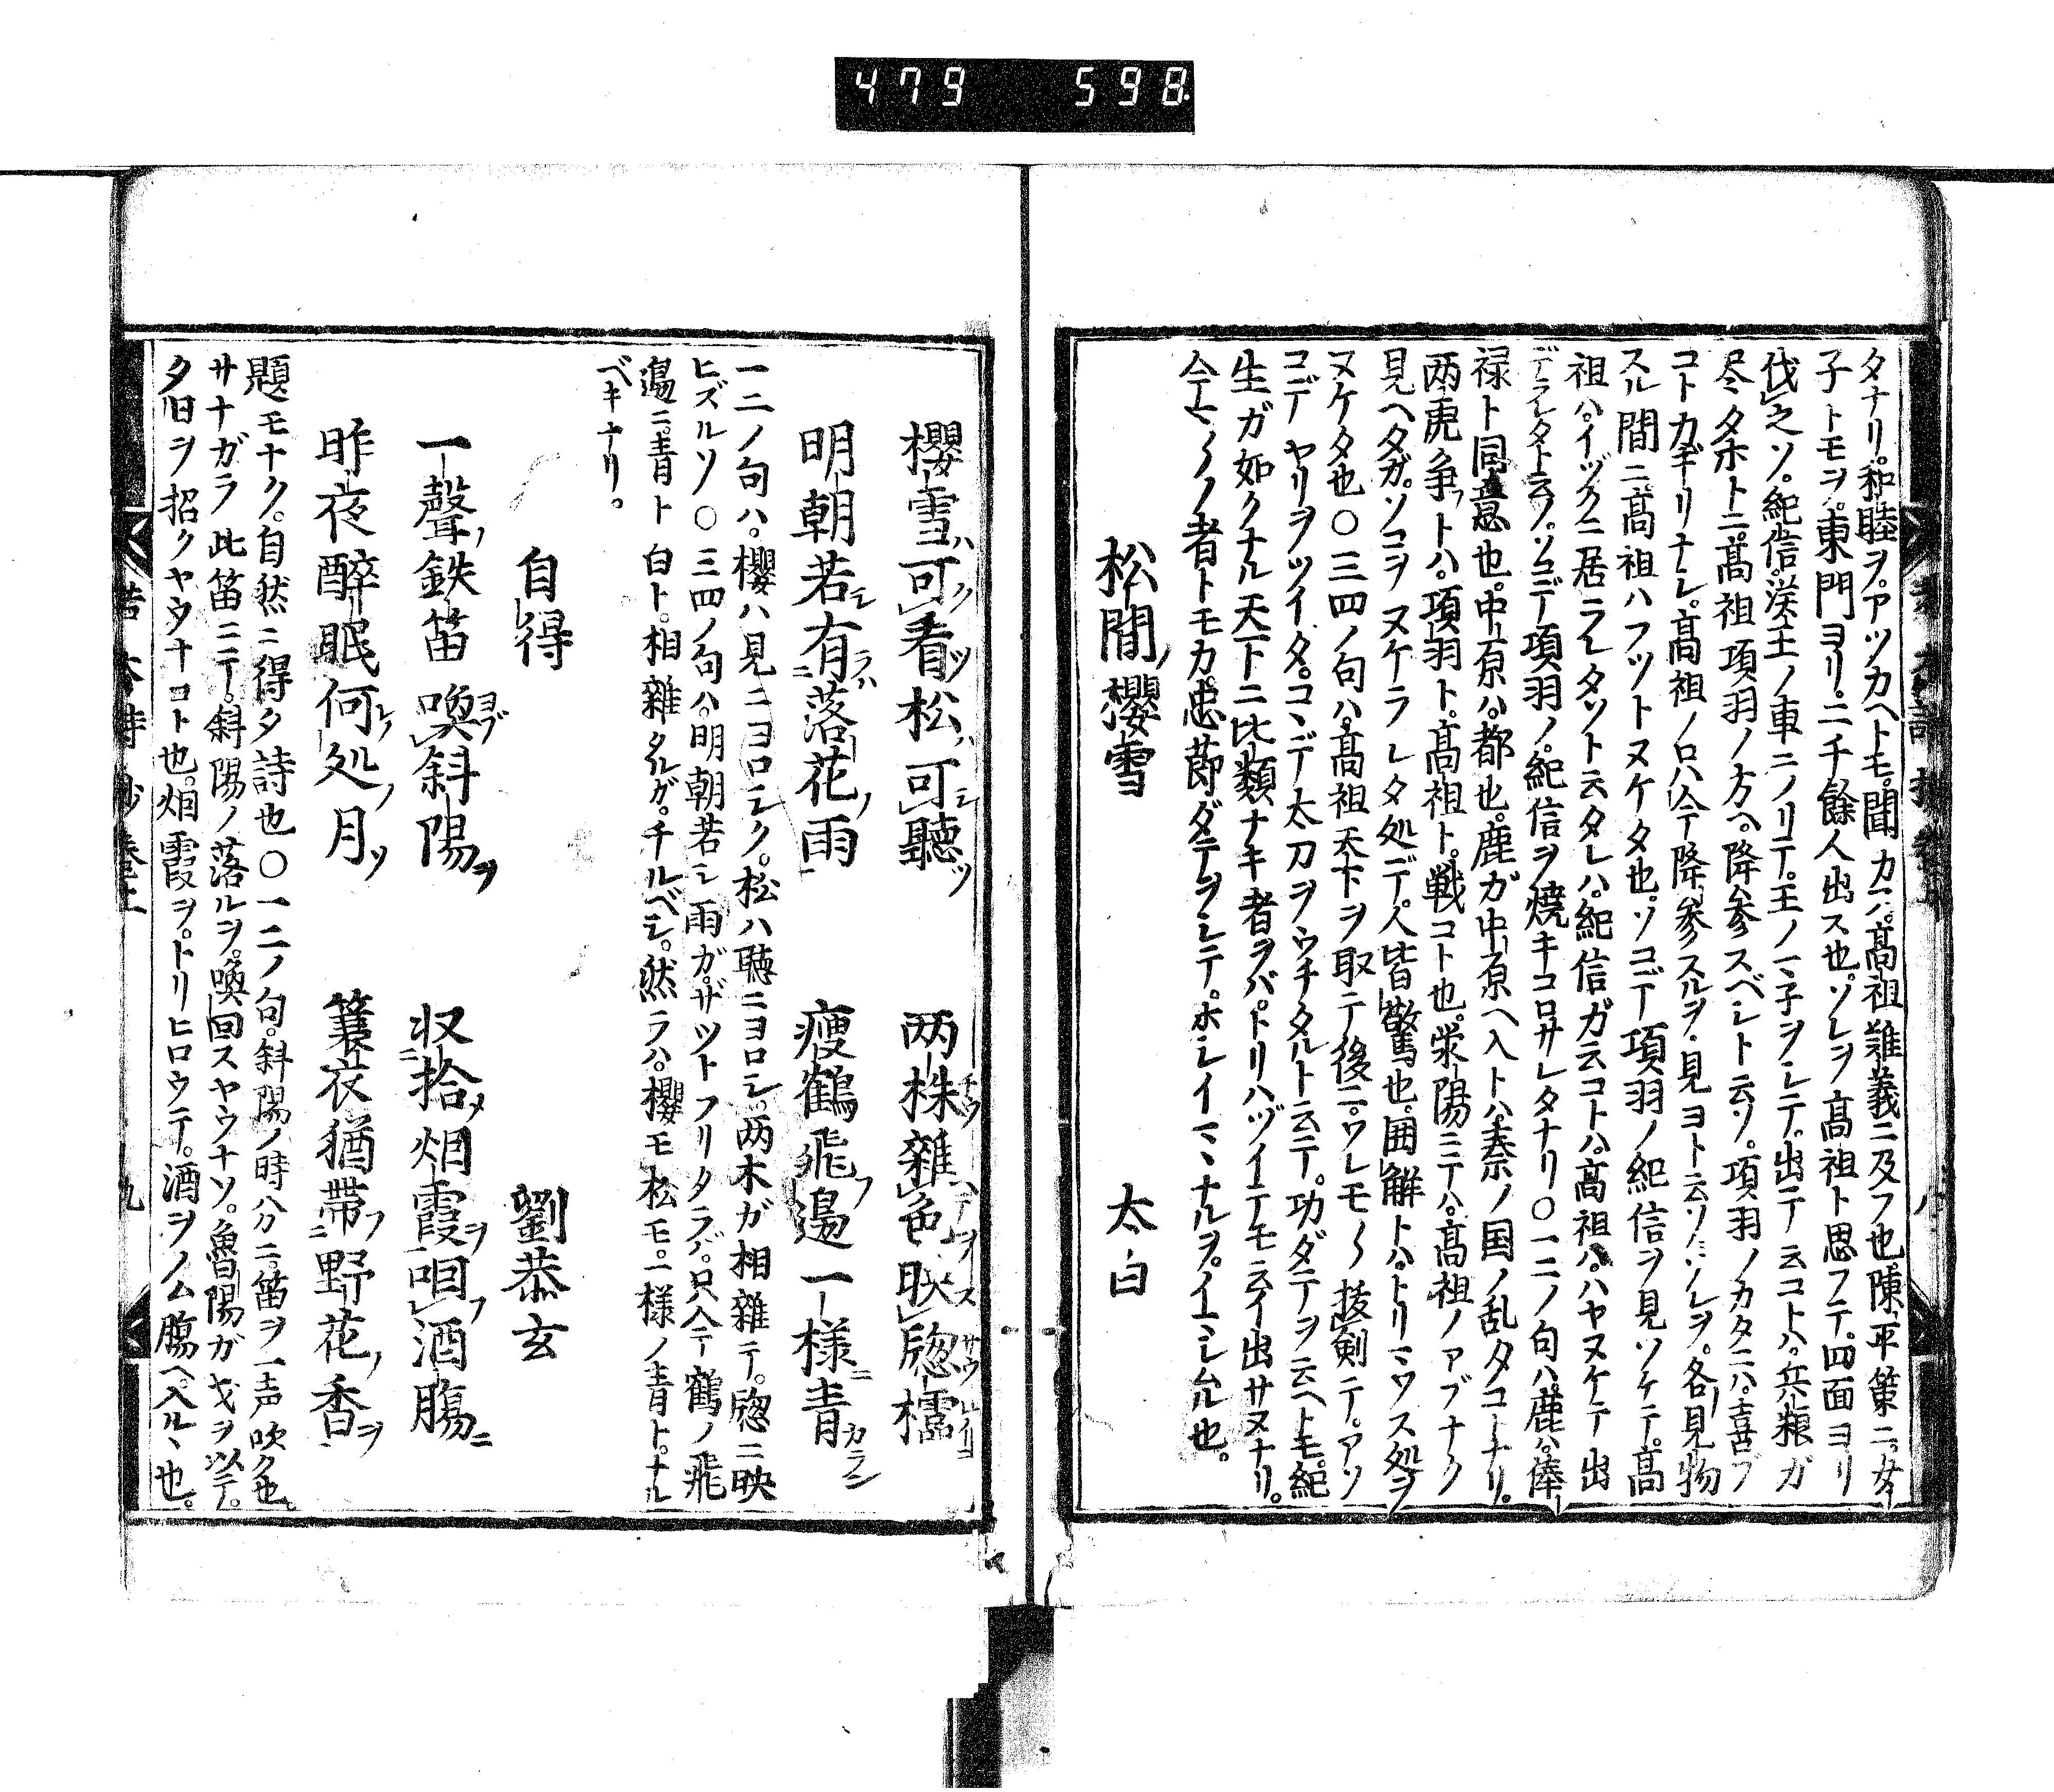 479 598
タナリ。和睦ヲ。アツカヘトモ。聞カズ。高祖難義ニ及フ也。陳平策ニ。女
子トモヲ。東門ヨリ。二千餘人出ス也。ソレヲ高祖ト思フテ。四面ヨリ
伐之ソ。紀信漢王ノ車ニノリテ。王ノマ子ヲシテ。出テ云コトハ。兵粮ガ
尽タホトニ。高祖項羽ノ方ヘ。降参スベシト云ソ。項羽ノカタニハ。喜フ
コトカギリナシ。高祖ノロハ今降参スルヲ。見ヨト云ソ。ソレヲ。各見物
スル間ニ。高祖ハフツトヌケタ也。ソコデ項羽ノ紀信ヲ見ツケテ。高
祖ハ。イヅクニ居ラレタソト云タレハ。紀信ガ云コトハ。高祖ハ。ハヤヌケテ出
デラレタト云ソ。ソコデ項羽ノ。紀信ヲ焼キコロサレタナリ〇一二ノ句ハ。鹿ハ。俸
禄ト同意也。中原ハ。都也。鹿ガ中原ヘ入トハ。秦ノ国ノ乱タコトナリ。
両虎争トハ。項羽ト。高祖ト。戦コト也。栄陽ニテハ。高祖ノアブナク
見ヘタガ。ソコヲヌケラレタ処デ。人皆驚也。囲解トハ。トリマワス処ヲ
ヌケタ也〇三四ノ句ハ。高祖天下ヲ取テ後ニ。ワレモ〱抜剣テ。アソ
コデヤリヲツイタ。コヽデ太刀ヲウチタルト云テ。功ダテヲ云ヘトモ。紀
生ガ如クナル天下ニ比類ナキ者ヲバ。トリハヅイテモ云イ出サヌナリ。
今マ〱ノ者トモカ。忠節ダテヲシテ。ホシイマヽナルヲ。イマシムル也。
松間櫻雪 太白
櫻雪可看松可聽 両株雜色映牕櫺
明朝若有落花雨 瘦鶴飛邉一様青
一二ノ句ハ。櫻ハ見ニヨロシク。松ハ聽ニヨロシ。両木ガ相雜テ。牕ニ映
ヒズルソ〇三四ノ句ハ。明朝若シ雨ガ。ザツトフリタラバ。只今テ鶴ノ飛
邉ニ。青ト白ト。相雜タルガ。チルベシ。然ラハ。櫻モ松モ。一様ノ青ト。ナル
ベキナリ。
自得 劉恭玄
一聲鉄笛喚斜陽 収拾烟霞咽酒膓
昨夜醉眠何処月 簑衣猶帯野花香
題モナク。自然ニ得タ詩也〇一二ノ句。斜陽ノ時分ニ。笛ヲ一声吹ク也。
サナガラ此笛ニテ。斜陽ノ落ルヲ。喚回スヤウナソ。魯陽ガ戈ヲ以テ。
夕日ヲ招クヤウナコト也。烟霞ヲ。トリヒロウテ。酒ヲノム膓ヘ。入ルヽ也。
九